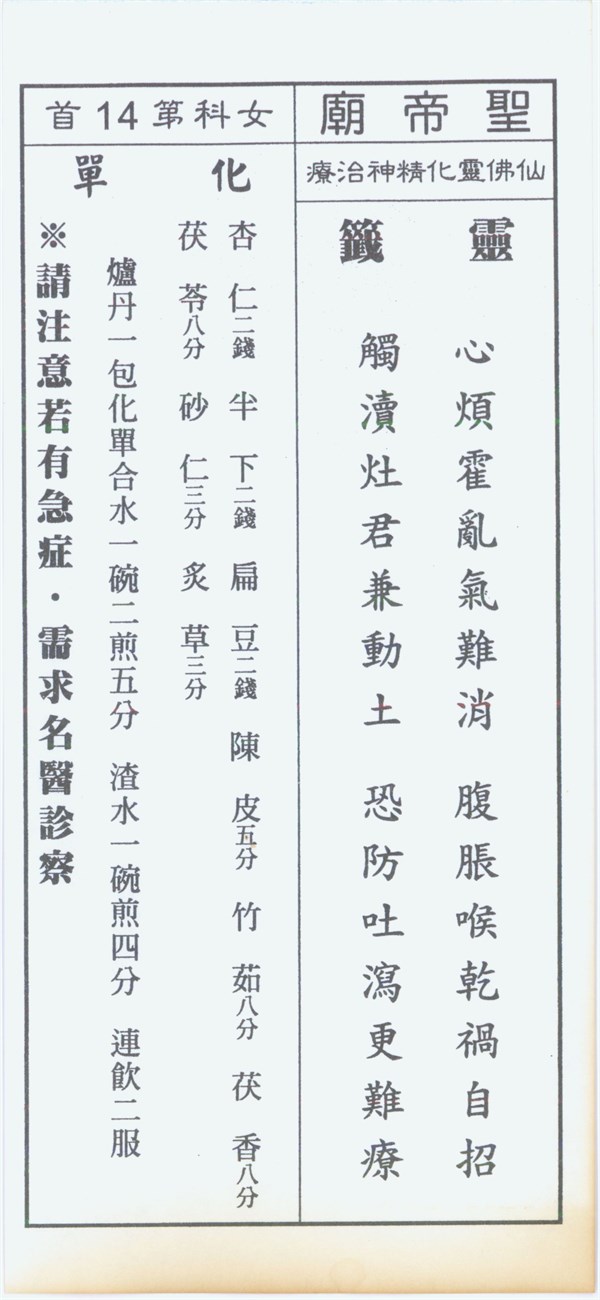 聖帝廟
仙佛靈化精神治療
靈籤
心煩霍亂氣難消 腹脹喉乾禍自招
觸瀆灶君兼動土 恐防吐瀉更難療
女科第14首
化單
杏仁二錢 半下二錢 扁豆二錢 陳皮五分 竹茹八分 茯香八分
茯苓八分 砂仁三分 炙草三分
爐丹一包化單合水一碗二煎五分 渣水一碗煎四分 連飲二服
※請注意若有急症・需求名醫診察